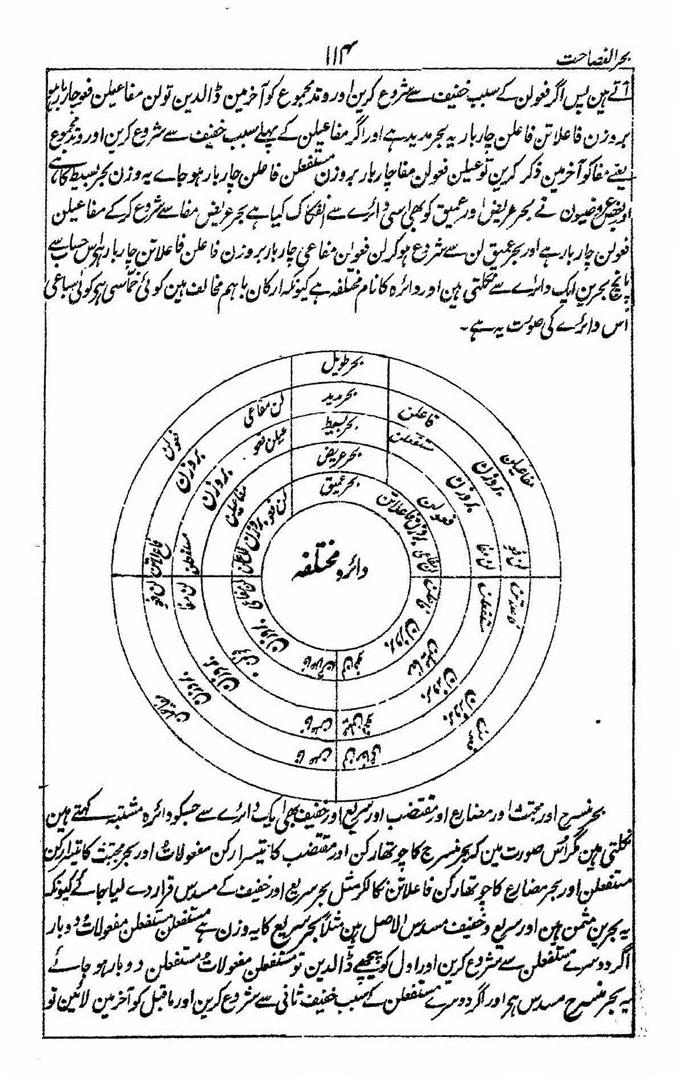 بحر الفصاحت
۱۱۴
آتے ہین پس اگر فعولن کے سبب خفیف سے شروع کرین اور وتد مجموع کو آخر مین ڈالدین تو لن مفاعیلن فعو چار بار ہو
بر وزن فاعلاتن فاعلن چار بار یہ بحر مدید ہے اور اگر مفاعیلن کے پہلے سبب خفیف سے شروع کرین اور وتد مجموع
یعنے مفا کو آخر مین ذکر کرین تو عیلن فعولن مفا چار بار بر وزن مستفعلن فاعلن چار بار ہو جاے یہ وزن بحر بسیط کا ہے
اور بعض عروضیون نے بحر عریض اور عمیق کو بھی اسی دائرے سے انفکاک کیا ہے بحر عریض مفا سے شروع کرکے مفاعیلن
فعولن چار بار ہے اور بحر عمیق لن سے شروع ہو کر لن فعولن مفاعی چار بار بر وزن فاعلن فاعلاتن چار بار ہے اس حساب سے
پانچ بحرین ایک دائرے سے نکلتی ہین اور دائرہ کا نام مختلفہ ہے کیونکہ ارکان باہم مخالف ہین کوئی خماسی ہے کوئی سباعی
اس دائرے کی صورت یہ ہے۔
بحر طویل
بحر مدید
بحر بسیط
بحر عریض
بحر عمیق
فعولن
مفاعیلن
لن مفاعی
فاعلن
بر وزن
بر وزن
عیلن فعو
مستفعلن
بر وزن
بر وزن
مفاعیلن
فعولن
لن فعو
بر وزن
فاعلاتن
دائرہ مختلفہ
لن فعو
لن مفا
فاعلاتن
مستفعلن
بر وزن
بر وزن
بر وزن
بر وزن
فاعلن
فاعلن
بحر منسرح اور مجتث اور مضارع اور مقتضب اور سریع اور خفیف بھی ایک دائرے سے جسکو دائرہ مشتبہ کہتے ہین
نکلتی ہین مگر اس صورت مین کہ بحر منسرح کا چوتھا رکن اور مقتضب کا تیسرا رکن مفعولات اور بحر مجتث کا تیسرا رکن
مستفعلن اور بحر مضارع کا چوتھا رکن فاعلاتن نکالکر مثل بحر سریع اور خفیف کے مسدس قرار دے لیا جاے کیونکہ
یہ بحرین مثمن ہین اور سریع و خفیف مسدس الاصل ہین مثلاً بحر سریع کا یہ وزن ہے مستفعلن مستفعلن مفعولات دو بار
اگر دوسرے مستفعلن سے شروع کرین اور اول کو پیچھے ڈالدین تو مستفعلن مفعولات مستفعلن دو بار ہو جاے
یہ بحر منسرح مسدس ہے اور اگر دوسرے مستفعلن کے سبب خفیف ثانی سے شروع کرین اور ماقبل کو آخر مین لائین تو